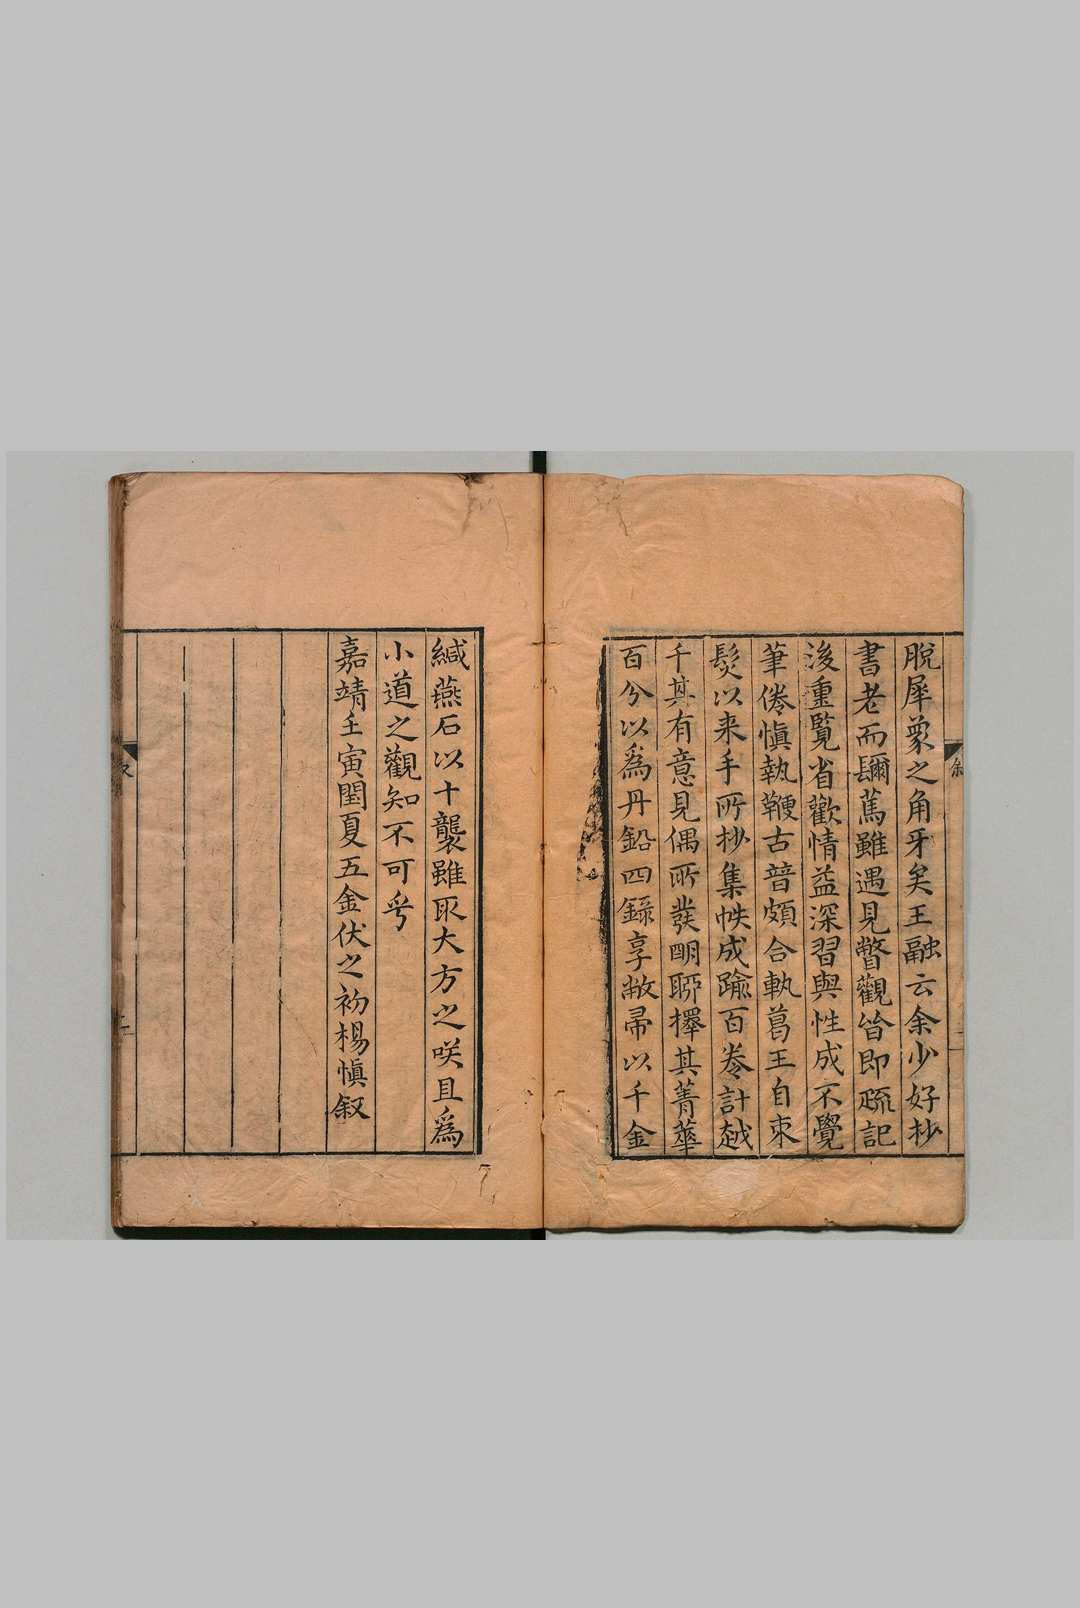 脫犀象之角牙矣王融云余少好抄
書老而彌篤雖遇見瞥觀皆即疏記
後重覽省歡情益深習與性成不覺
筆倦愼執鞭古昔頗合軌葛王自束
髮以来手所抄集帙成踰百卷計越
千其有意見偶所發明聊擇其菁華
百分以爲丹鉛四錄享敝帚以千金
緘燕石以十襲雖取大方之咲且爲
小道之觀知不可乎
嘉靖壬寅閏夏五金伏之初楊愼叙